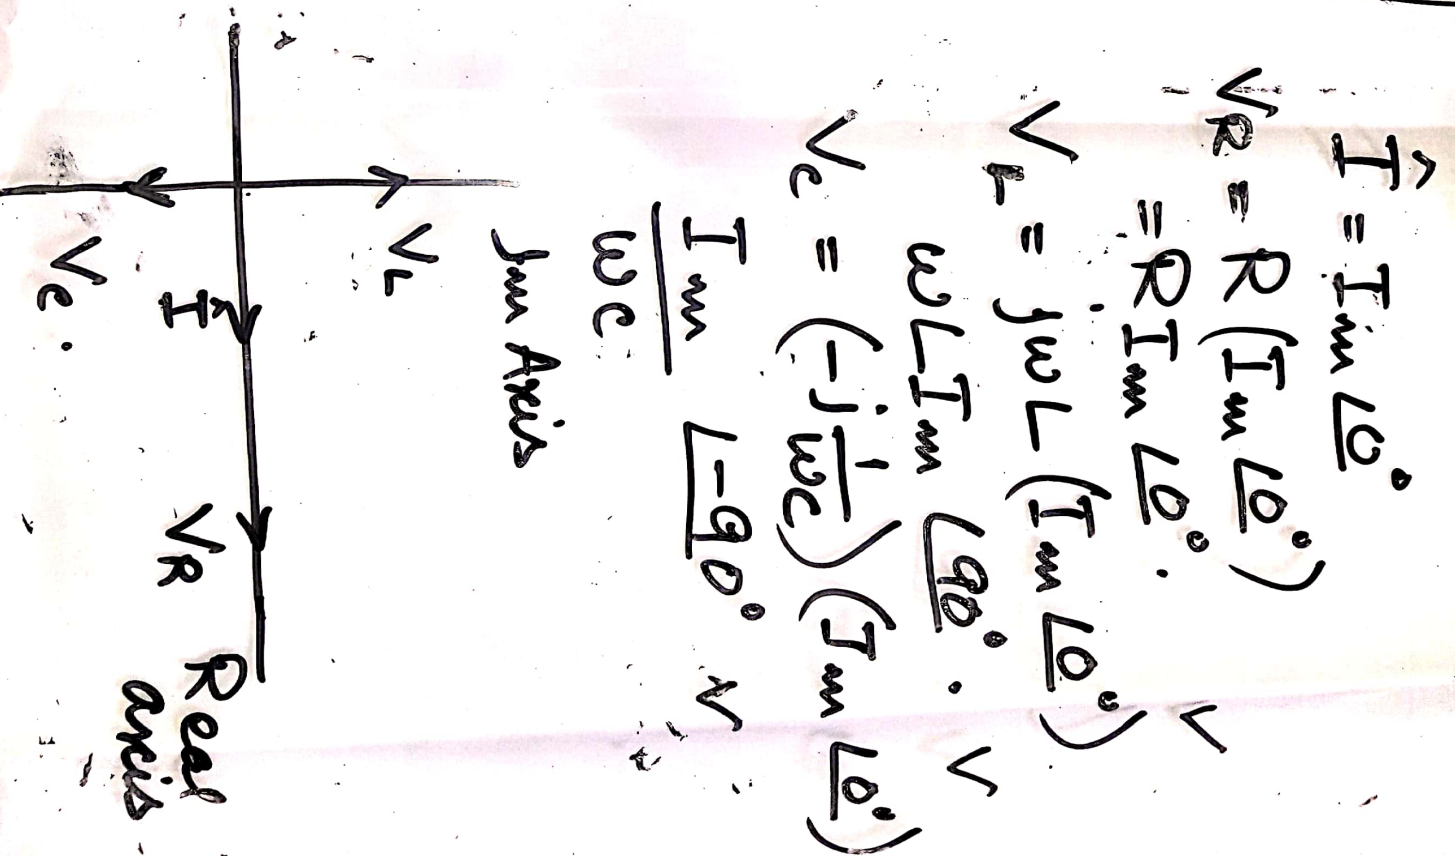 Î = Im ∠0°
VR = R (Im ∠0°)
= R Im ∠0°. V
VL = jωL (Im ∠0°)
ωL Im ∠90°. V
Vc = (-j 1/ωc) (Im ∠0°)
Im/ωc ∠-90° V
Im Axis
VL
Î VR Real
axis
Vc.